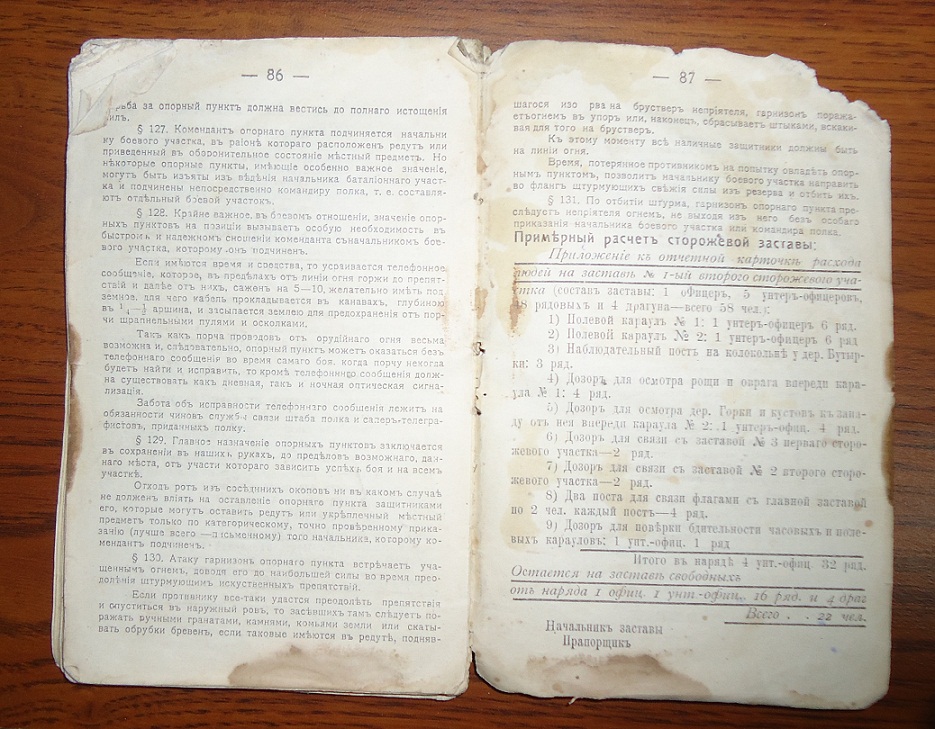 — 86 —
рьба за опорный пунктъ должна вестись до полнаго истощенія
силъ.
§ 127. Комендантъ опорнаго пункта подчиняется начальни
ку боевого участка, въ раіонѣ котораго расположенъ редутъ или
приведенный въ оборонительное состояніе мѣстный предметъ. Но
нѣкоторые опорные пункты, имѣющіе особенно важное значеніе,
могутъ быть изъяты изъ вѣдѣнія начальника баталіоннаго участ-
ка и подчинены непосредственно командиру полка, т. е. составля-
ютъ отдѣльный боевой участокъ.
§ 128. Крайне важное, въ боевомъ отношеніи, значеніе опор-
ныхъ пунктовъ на позиціи вызываетъ особую необходимость въ
быстромъ и надежномъ сношеніи коменданта съначальникомъ бое-
вого участка, которому онъ подчиненъ.
Если имѣются время и средства, то устраивается телефонное
сообщеніе, которое, въ предѣлахъ отъ линіи огня горжи до препят-
ствій и далѣе отъ нихъ, саженъ на 5—10, желательно имѣть под
земное, для чего кабель прокладывается въ канавахъ, глубиною
въ ¼—½ аршина, и засыпается землею для предохраненія отъ пор-
чи шрапнельными пулями и осколками.
Такъ какъ порча проводовъ отъ орудійнаго огня весьма
возможна и, слѣдовательно, опорный пунктъ можетъ оказаться безъ
телефоннаго сообщенія во время самаго боя, когда порчу некогда
будетъ найти и исправить, то, кромѣ телефоннаго сообщенія долж-
на существовать какъ дневная, такъ и ночная оптическая сигна-
лизація.
Забота объ исправности телефоннаго сообщенія лежитъ на
обязанности чиновъ службы связи штаба полка и саперъ-телегра-
фистовъ, приданныхъ полку.
§ 129. Главное назначеніе опорныхъ пунктовъ заключается
въ сохраненіи въ нашихъ рукахъ, до предѣловъ возможнаго, дан-
наго мѣста, отъ участи котораго зависитъ успѣхъ боя и на всемъ
участкѣ.
Отходъ ротъ изъ сосѣднихъ окоповъ ни въ какомъ случаѣ
не долженъ вліять на оставленіе опорнаго пункта защитниками
его, которые могутъ оставить редутъ или укрѣпленный мѣстный
предметъ только по категорическому, точно провѣренному прика-
занію (лучше всего —письменному) того начальника, которому ко-
мендантъ подчиненъ.
§ 130. Атаку гарнизонъ опорнаго пункта встрѣчаетъ уча-
щеннымъ огнемъ, доводя его до наибольшей силы во время прео-
долѣнія штурмующимъ искуственныхъ препятствій.
Если противнику все-таки удастся преодолѣть препятствія
и опуститься въ наружный ровъ, то засѣвшихъ тамъ слѣдуетъ по-
ражать ручными гранатами, камнями, комьями земли или скаты-
вать обрубки бревенъ, если таковые имѣются въ редутѣ, подняв-
— 87 —
шагося изо рва на брустверъ непріятеля, гарнизонъ поража-
етьогнемъ въ упоръ или, наконецъ, сбрасываетъ штыками, вскаки-
вая для того на брустверъ.
Къ этому моменту всѣ наличные защитники должны быть
на линіи огня.
Время, потерянное противникомъ на попытку овладѣть опор-
нымъ пунктомъ, позволитъ начальнику боевого участка направить
во флангъ штурмующихъ свѣжія силы изъ резерва и отбить ихъ.
§ 131. По отбитіи штурма, гарнизонъ опорнаго пункта пре-
слѣдуетъ непріятеля огнемъ, не выходя изъ него безъ особаго
приказанія начальника боевого участка или командира полка.
Примѣрный расчетъ сторожевой заставы:
Приложеніе къ отчетной карточкѣ расхода
людей на заставѣ № 1-ый второго сторожевого уча-
стка (составъ заставы: 1 офицеръ, 5 унтеръ-офицеровъ,
48 рядовыхъ и 4 драгуна—всего 58 чел.):
1) Полевой караулъ № 1: 1 унтеръ-офицеръ 6 ряд.
2) Полевой караулъ № 2: 1 унтеръ-офицеръ 6 ряд
3) Наблюдательный постъ на колокольнѣ у дер. Бутыр-
ки: 3 ряд.
4) Дозоръ для осмотра рощи и оврага впереди кара-
ула № 1: 4 ряд.
5) Дозоръ для осмотра дер. Горки и кустовъ къ запа-
ду отъ нея впереди караула № 2: 1 унтеръ-офиц. 4 ряд.
6) Дозоръ для связи съ заставой № 3 перваго сторо-
жевого участка—2 ряд.
7) Дозоръ для связи съ заставой № 2 второго сторо-
жевого участка—2 ряд.
8) Два поста для связи флагами съ главной заставой
по 2 чел. каждый постъ—4 ряд.
9) Дозоръ для повѣрки бдительности часовыхъ и поле-
выхъ карауловъ: 1 унт.-офиц. 1 ряд
Итого въ нарядѣ 4 унт.-офиц. 32 ряд.
Остается на заставѣ свободныхъ
отъ наряда 1 офиц. 1 унт-офиц., 16 ряд. и 4 драг
Всего . . 22 чел.
Начальникъ заставы
Прапорщикъ